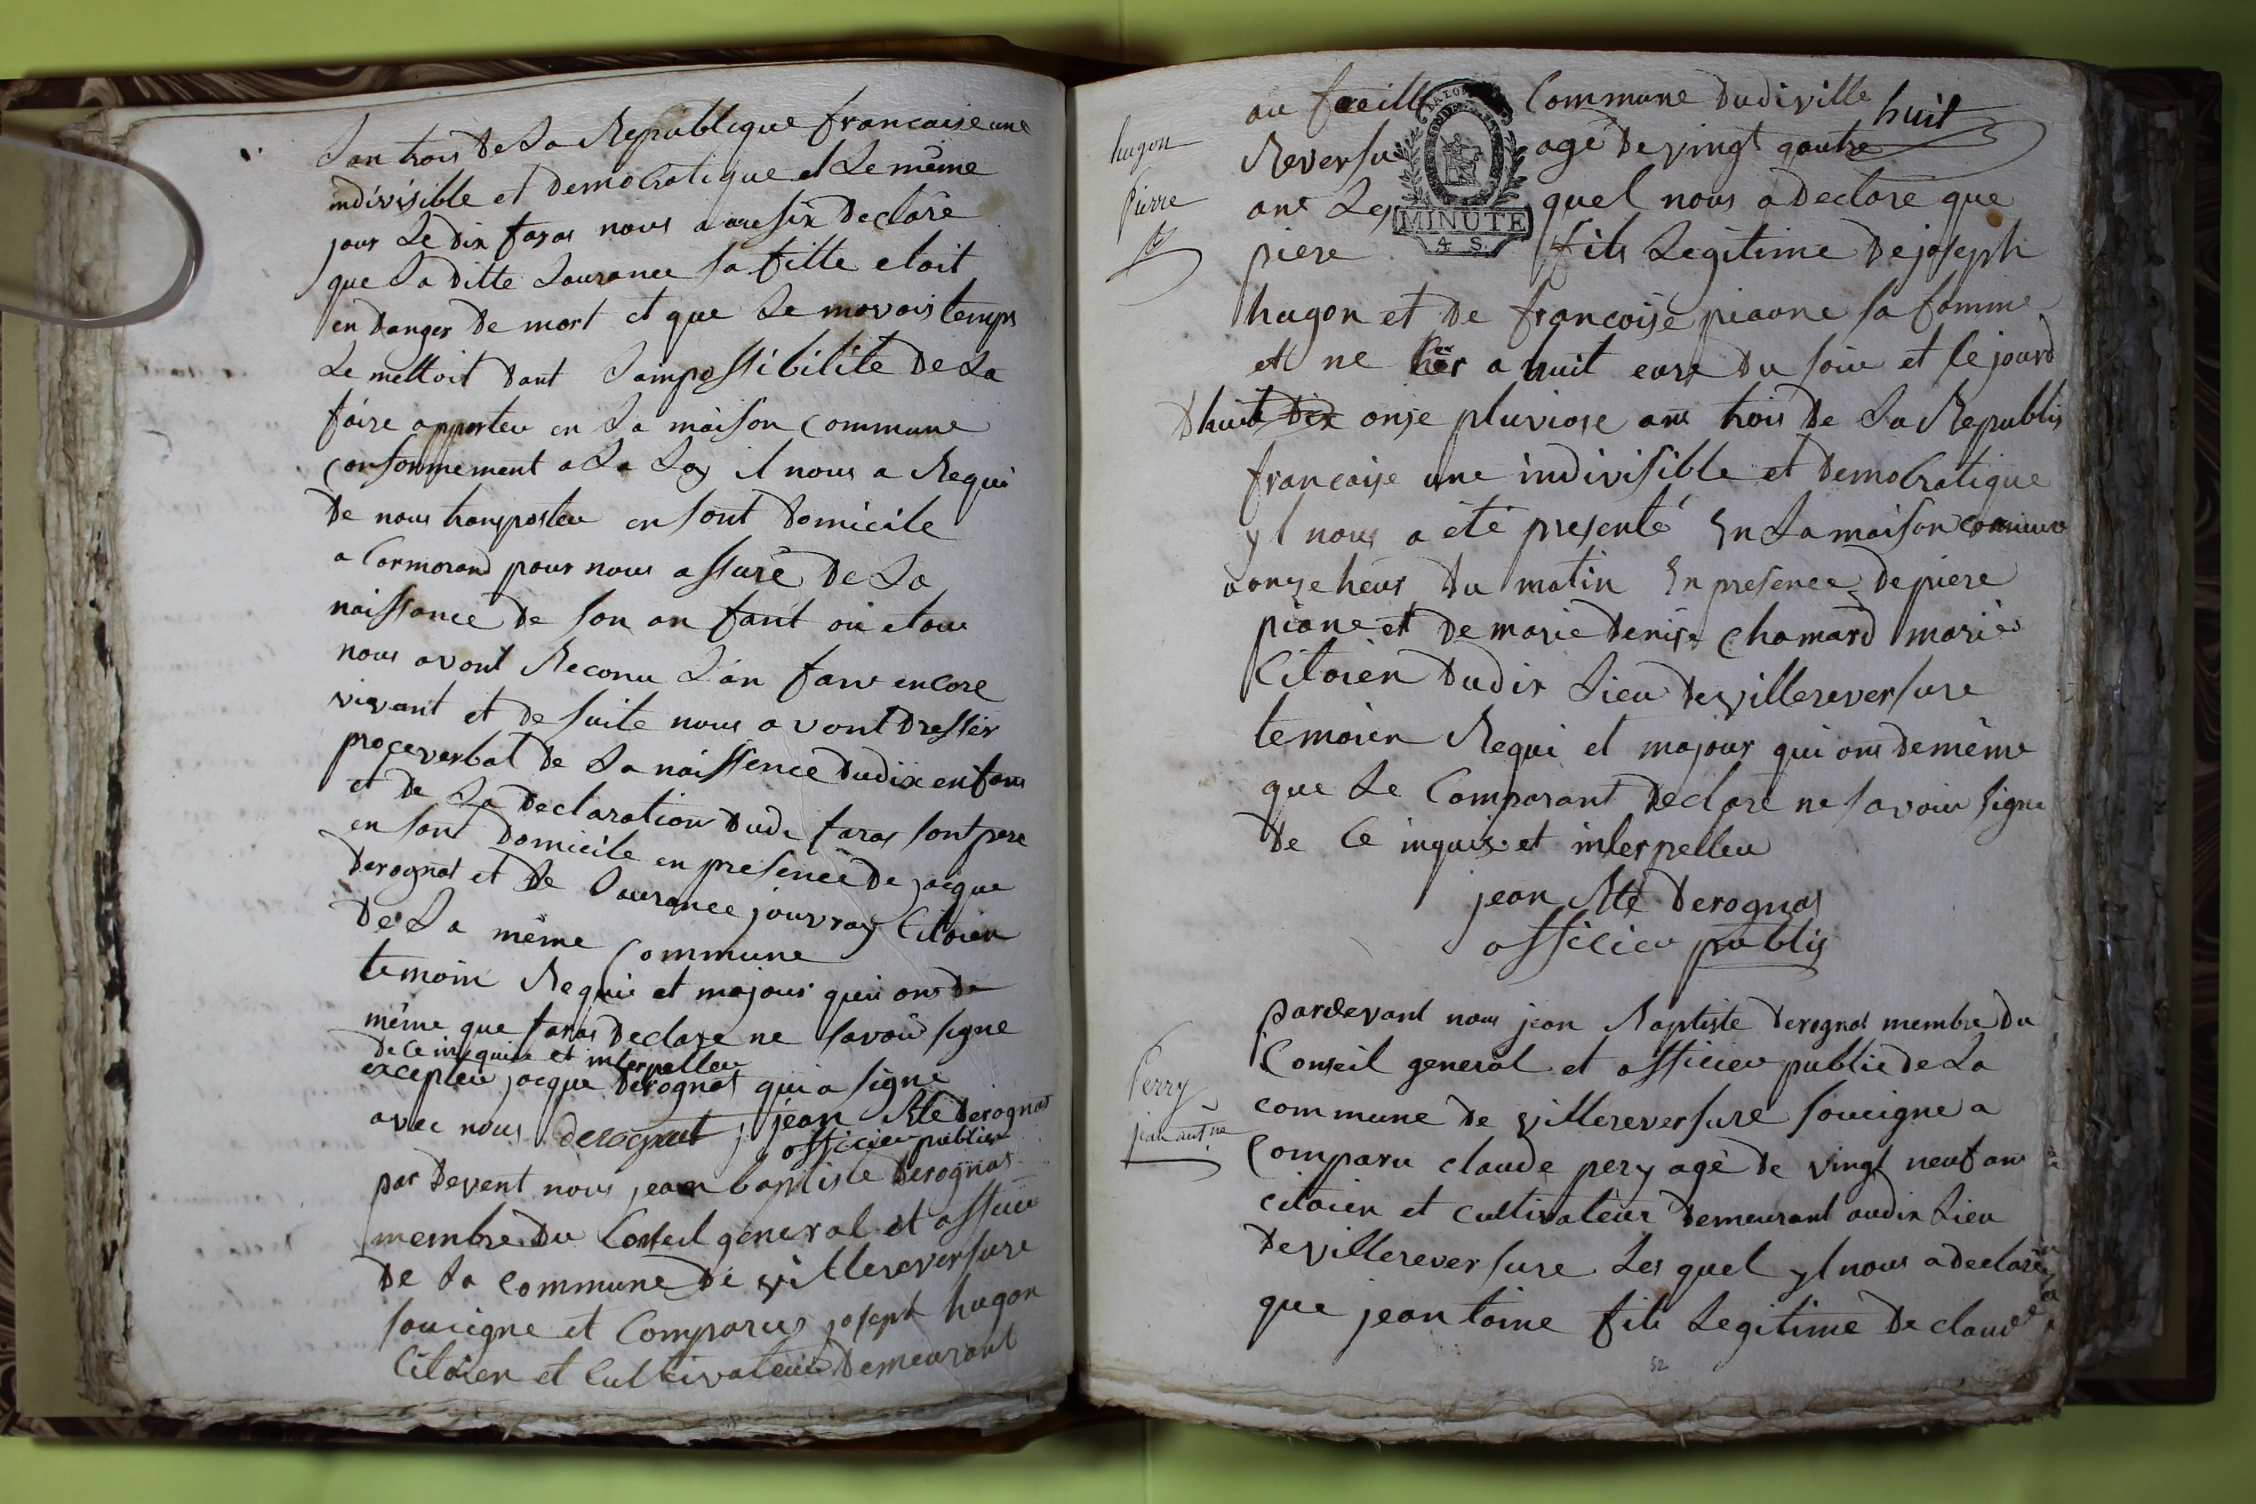 Lan trois de La Republique francaise une
indivisible et democratique et Le même
jour Le dix faras nous a ausix declaré
que La ditte Laurance sa fille etoit
en danger de mort et que Le movais temps
Le mettoit dant Lampossibilité de La
faire apporteu en La maison commune
conformement a La Loy il nous a Requi
de nous transporteu en sont domicile
a Cormorand pour nous assuré de La
naissance de son an fant ou etau
nous avont Reconu Lan fans encore
vivant et de suite nous avont dresser
proceverbal de La naissence dudix enfans
et de La declaration dudi faras sont pere
en sont domicile en presence de jacque
derognat et de Laurance jouvray Citoien
de La même Commune
temoin Requi et majour quii ons de
même que faras declare ne savoir signe
de ce inquise et interpelleu
excepteu jacque derognat qui a signe
avec nous derognat ; jean Bte derognat
officier publier
par devent nous jean baptiste derognat
membre du Conseil general et officier
de La commune de villereversure
soucigne et Comparus joseph hugon
Citoien et Cultivateur demeurant
hugon
Pierre
au Commune dudiville
huit
Reversu age de vingt qautre
ans Les quel nous a declaré que
piere fils Legitime de joseph
hugon et de francoise piaone sa famme
et ne hier a huit eure du soire et le jourd
dhuit dix onse pluviose ans trois de La Republis
francaise une indivisible et democratique
yl nous a été presenté En La maison commune
a onze heus du matin En presence de piere
piane et de marie denise chamard marié
Citoien dudix Lieu de villereversure
temoien Requi et majour qui ons de même
que Le Comparant declaré ne savoir signe
de Ce inquise et interpelleu
jean Bte derognat
officier publis
MINUTE
4 S.
Perry
jean ant.ne
pardevant nous jean Baptiste derognat membre du
Conseil general et officier public de La
commune de villereversure soucigne a
Comparu claude pery agé de vingt neuf ans
citoien et cultivateur demeurant audix Lieu
de villereversure Les quel yl nous a declaré
que jean toine fils Legitime de claude
52